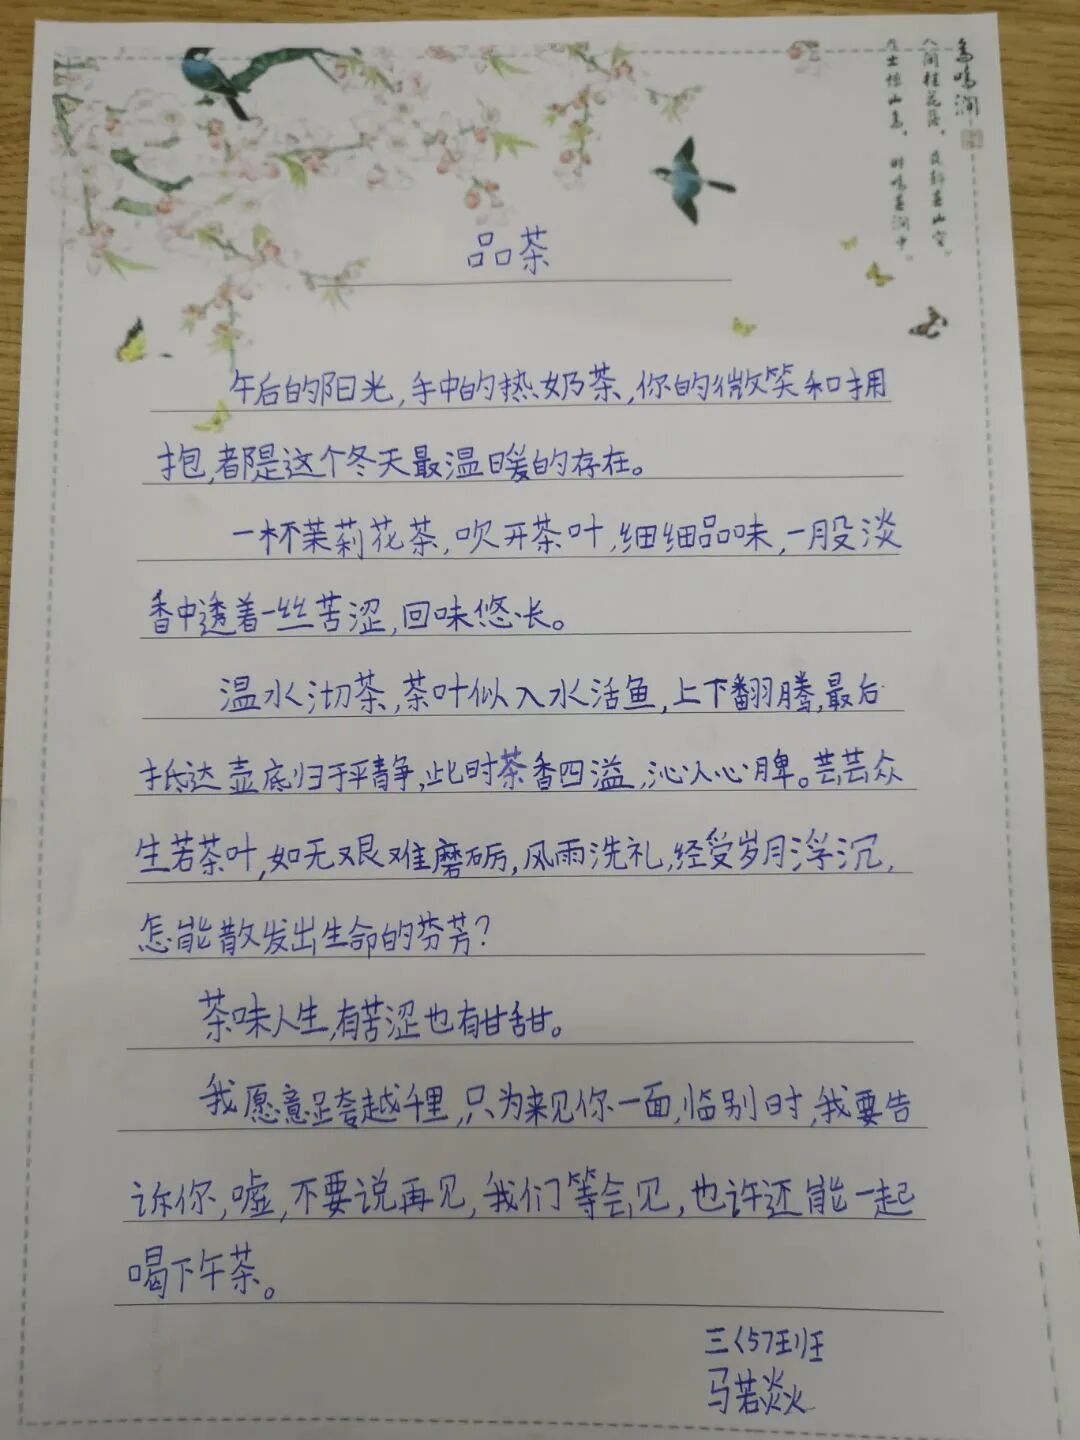 鸟鸣涧
人闲桂花落，夜静春山空。
月出惊山鸟，时鸣春涧中。
品茶
午后的阳光,手中的热奶茶,你的微笑和拥
抱,都是这个冬天最温暖的存在。
一杯茉莉花茶,吹开茶叶,细细品味,一股淡
香中透着一丝苦涩,回味悠长。
温水沏茶,茶叶似入水活鱼,上下翻腾,最后
抵达壶底归于平静,此时茶香四溢,沁人心脾。芸芸众
生若茶叶,如无艰难磨砺,风雨洗礼,经受岁月浮沉,
怎能散发出生命的芬芳?
茶味人生,有苦涩也有甘甜。
我愿意跨越千里,只为来见你一面,临别时,我要告
诉你,嘘,不要说再见,我们等会见,也许还能一起
喝下午茶。
三〈5班
马若焱